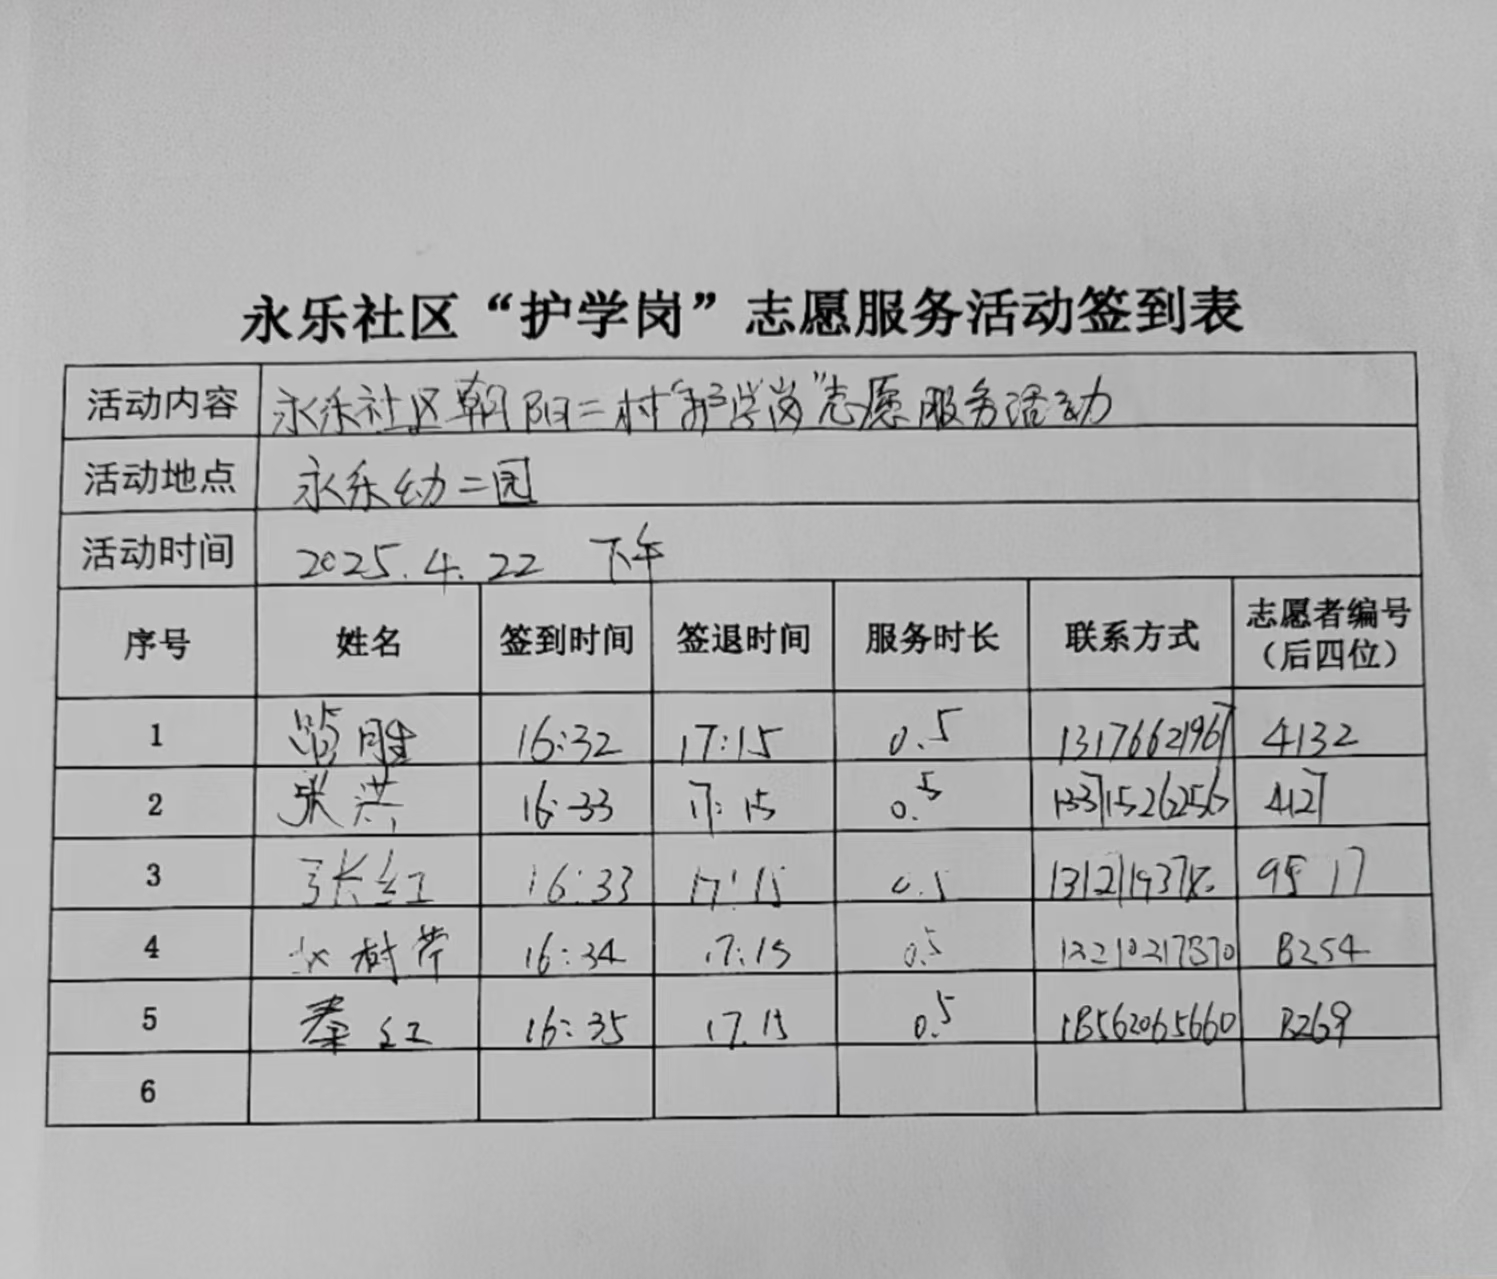 永乐社区“护学岗”志愿服务活动签到表
活动内容 永乐社区朝阳二村“护学岗”志愿服务活动
活动地点 永乐幼二园
活动时间 2025.4.22 下午
序号 姓名 签到时间 签退时间 服务时长 联系方式 志愿者编号（后四位）
1 胜 16:32 17:15 0.5 13176621967 4132
2 张洪 16:33 17:15 0.5 13371526256 4127
3 张红 16:33 17:15 0.5 9517
4 树芹 16:34 17:15 0.5 8254
5 秦红 16:35 17.15 0.5 18562065660 8269
6